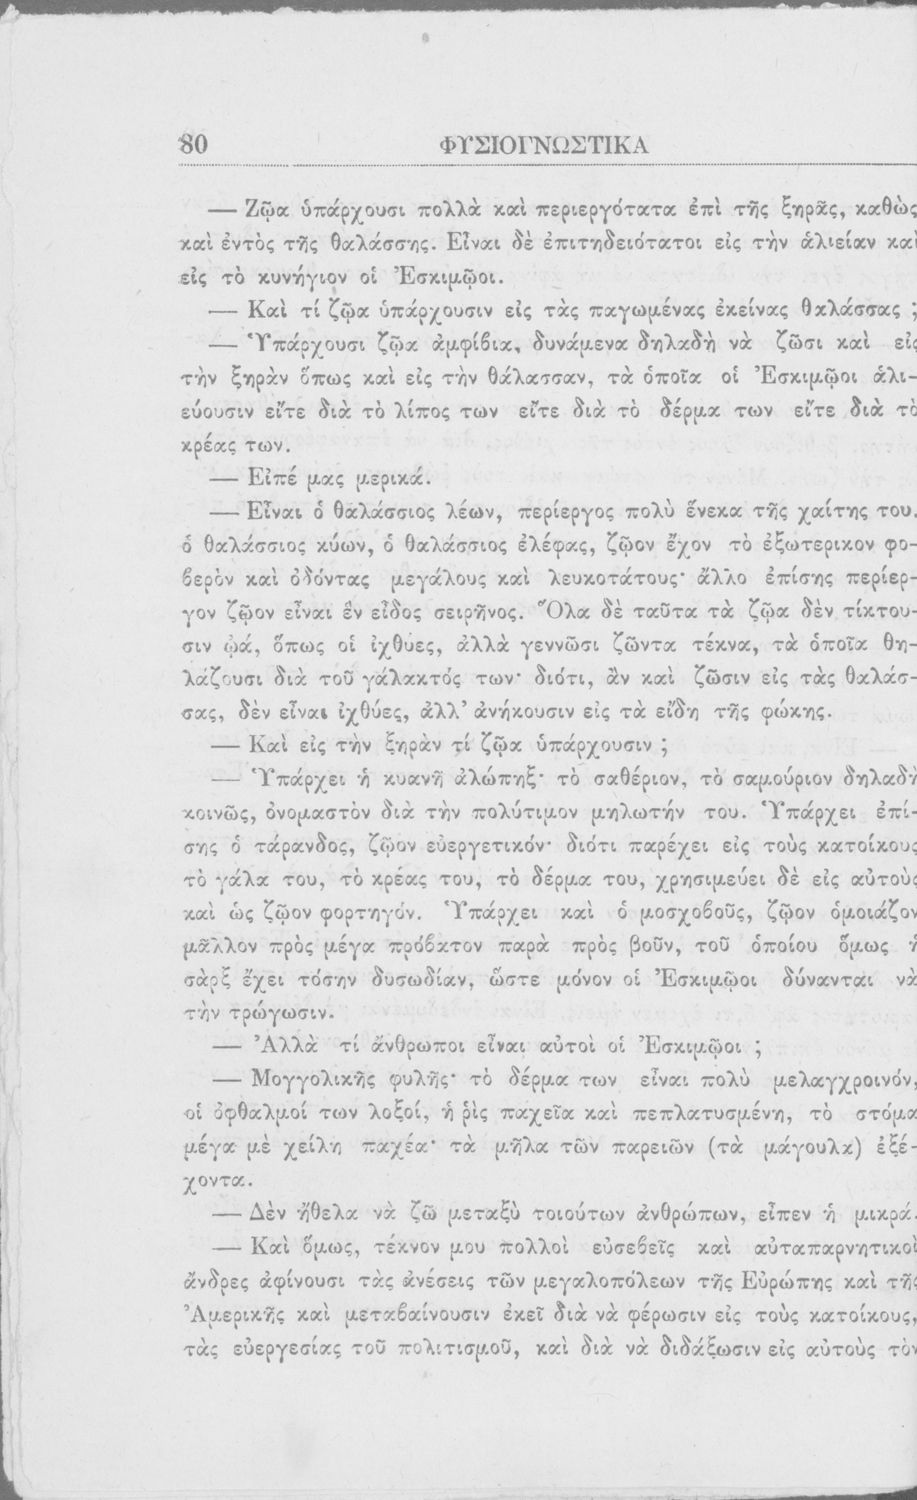 80 ΦΥΣΙΟΓΝΩΣΤΙΚΑ
— Ζῷα ὑπάρχουσι πολλὰ καὶ περιεργότατα ἐπὶ τῆς ξηρᾶς, καθὼς
καὶ ἐντὸς τῆς θαλάσσης. Εἶναι δὲ ἐπιτηδειότατοι εἰς τὴν ἁλιείαν καὶ
εἰς τὸ κυνήγιον οἱ Ἐσκιμῷοι.
— Καὶ τί ζῷα ὑπάρχουσιν εἰς τὰς παγωμένας ἐκείνας θαλάσσας ;
— Ὑπάρχουσι ζῷα ἀμφίβια, δυνάμενα δηλαδὴ νὰ ζῶσι καὶ εἰς
τὴν ξηρὰν ὅπως καὶ εἰς τὴν θάλασσαν, τὰ ὁποῖα οἱ Ἐσκιμῷοι ἁλι-
εύουσιν εἴτε διὰ τὸ λίπος των εἴτε διὰ τὸ δέρμα των εἴτε διὰ τὸ
κρέας των.
— Εἰπέ μας μερικά.
— Εἶναι ὁ θαλάσσιος λέων, περίεργος πολὺ ἕνεκα τῆς χαίτης του.
ὁ θαλάσσιος κύων, ὁ θαλάσσιος ἐλέφας, ζῷον ἔχον τὸ ἐξωτερικον φο-
βερὸν καὶ ὀδόντας μεγάλους καὶ λευκοτάτους· ἄλλο ἐπίσης περίερ-
γον ζῷον εἶναι ἓν εἶδος σειρῆνος. Ὅλα δὲ ταῦτα τὰ ζῷα δὲν τίκτου-
σιν ᾠά, ὅπως οἱ ἰχθύες, ἀλλὰ γεννῶσι ζῶντα τέκνα, τὰ ὁποῖα θη-
λάζουσι διὰ τοῦ γάλακτός των· διότι, ἂν καὶ ζῶσιν εἰς τὰς θαλάσ-
σας, δὲν εἶναι ἰχθύες, ἀλλ’ ἀνήκουσιν εἰς τὰ εἴδη τῆς φώκης.
— Καὶ εἰς τὴν ξηρὰν τί ζῷα ὑπάρχουσιν ;
— Ὑπάρχει ἡ κυανῆ ἀλώπηξ· τὸ σαθέριον, τὸ σαμούριον δηλαδὴ
κοινῶς, ὀνομαστὸν διὰ τὴν πολύτιμον μηλωτήν του. Ὑπάρχει ἐπί-
σης ὁ τάρανδος, ζῷον εὐεργετικόν· διότι παρέχει εἰς τοὺς κατοίκους
τὸ γάλα του, τὸ κρέας του, τὸ δέρμα του, χρησιμεύει δὲ εἰς αὐτοὺς
καὶ ὡς ζῷον φορτηγόν. Ὑπάρχει καὶ ὁ μοσχοβοῦς, ζῷον ὁμοιάζον
μᾶλλον πρὸς μέγα πρόβατον παρὰ πρὸς βοῦν, τοῦ ὁποίου ὅμως ἡ
σὰρξ ἔχει τόσην δυσωδίαν, ὥστε μόνον οἱ Ἐσκιμῷοι δύνανται νὰ
τὴν τρώγωσιν.
— Ἀλλὰ τί ἄνθρωποι εἶναι αὐτοὶ οἱ Ἐσκιμῷοι ;
— Μογγολικῆς φυλῆς· τὸ δέρμα των εἶναι πολὺ μελαγχροινόν,
οἱ ὀφθαλμοί των λοξοί, ἡ ῥὶς παχεῖα καὶ πεπλατυσμένη, τὸ στόμα
μέγα μὲ χείλη παχέα· τὰ μῆλα τῶν παρειῶν (τὰ μάγουλα) ἐξέ-
χοντα.
— Δὲν ἤθελα νὰ ζῶ μεταξὺ τοιούτων ἀνθρώπων, εἶπεν ἡ μικρά.
— Καὶ ὅμως, τέκνον μου πολλοὶ εὐσεβεῖς καὶ αὐταπαρνητικοὶ
ἄνδρες ἀφίνουσι τὰς ἀνέσεις τῶν μεγαλοπόλεων τῆς Εὐρώπης καὶ τῆς
Ἀμερικῆς καὶ μεταβαίνουσιν ἐκεῖ διὰ νὰ φέρωσιν εἰς τοὺς κατοίκους,
τὰς εὐεργεσίας τοῦ πολιτισμοῦ, καὶ διὰ νὰ διδάξωσιν εἰς αὐτοὺς τὸν